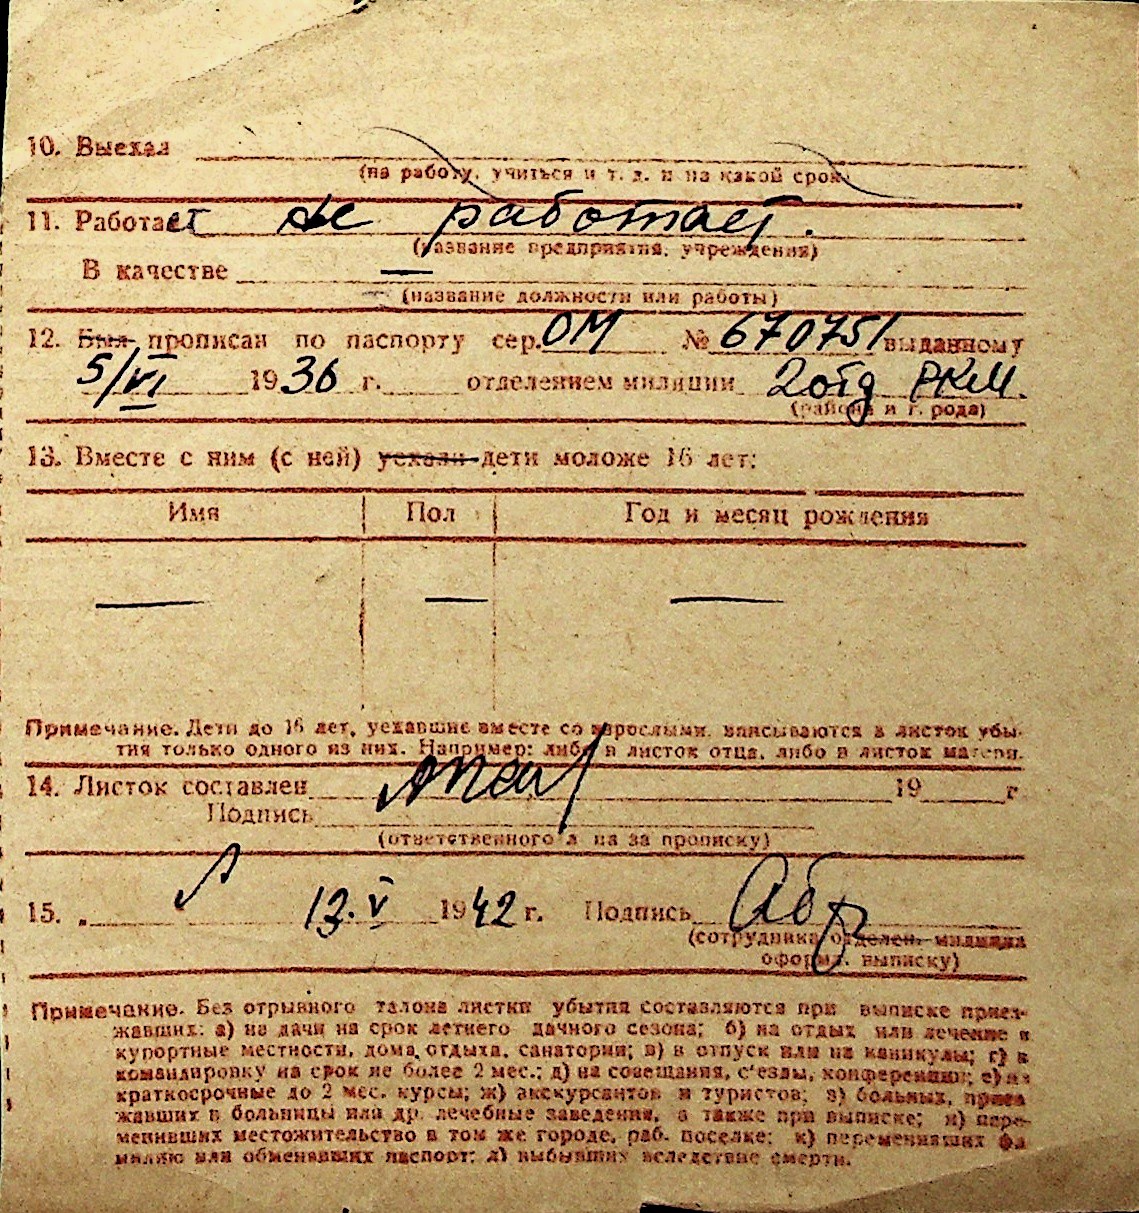 10. Выехал
(на работу, учиться и т. д. и на какой срок)
11. Работает не работает.
(название предприятия, учреждения)
В качестве —
(название должности или работы)
12. Был прописан по паспорту сер. ОМ № 670751 выданному
5/VI 1936 г. отделением милиции 2 отд РКМ.
(района и города)
13. Вместе с ним (с ней) уехали дети моложе 16 лет:
Имя Пол Год и месяц рождения
— — —
Примечание. Дети до 16 лет, уехавшие вместе со взрослыми, вписываются в листок убы-
тия только одного из них. Например: либо в листок отца, либо в листок матери.
14. Листок составлен 19 г
Подпись
(ответственного л на за прописку)
15. 13.V 1942 г. Подпись
(сотрудника отделен. милиции
оформ. выписку)
Примечание. Без отрывного талона листки убытия составляются при выписке приез-
жавших: а) на дачи на срок летнего дачного сезона; б) на отдых или лечение в
курортные местности, дома отдыха, санатории; в) в отпуск или на каникулы; г) в
командировку на срок не более 2 мес.; д) на совещания, с'езды, конференции; е) на
краткосрочные до 2 мес. курсы; ж) экскурсантов и туристов; з) больных, приез
жавших в больницы или др. лечебные заведения, а также при выписке; и) пере-
менивших местожительство в том же городе, раб. поселке; к) переменивших фа
милию или обменявших паспорт; л) выбывших вследствие смерти.